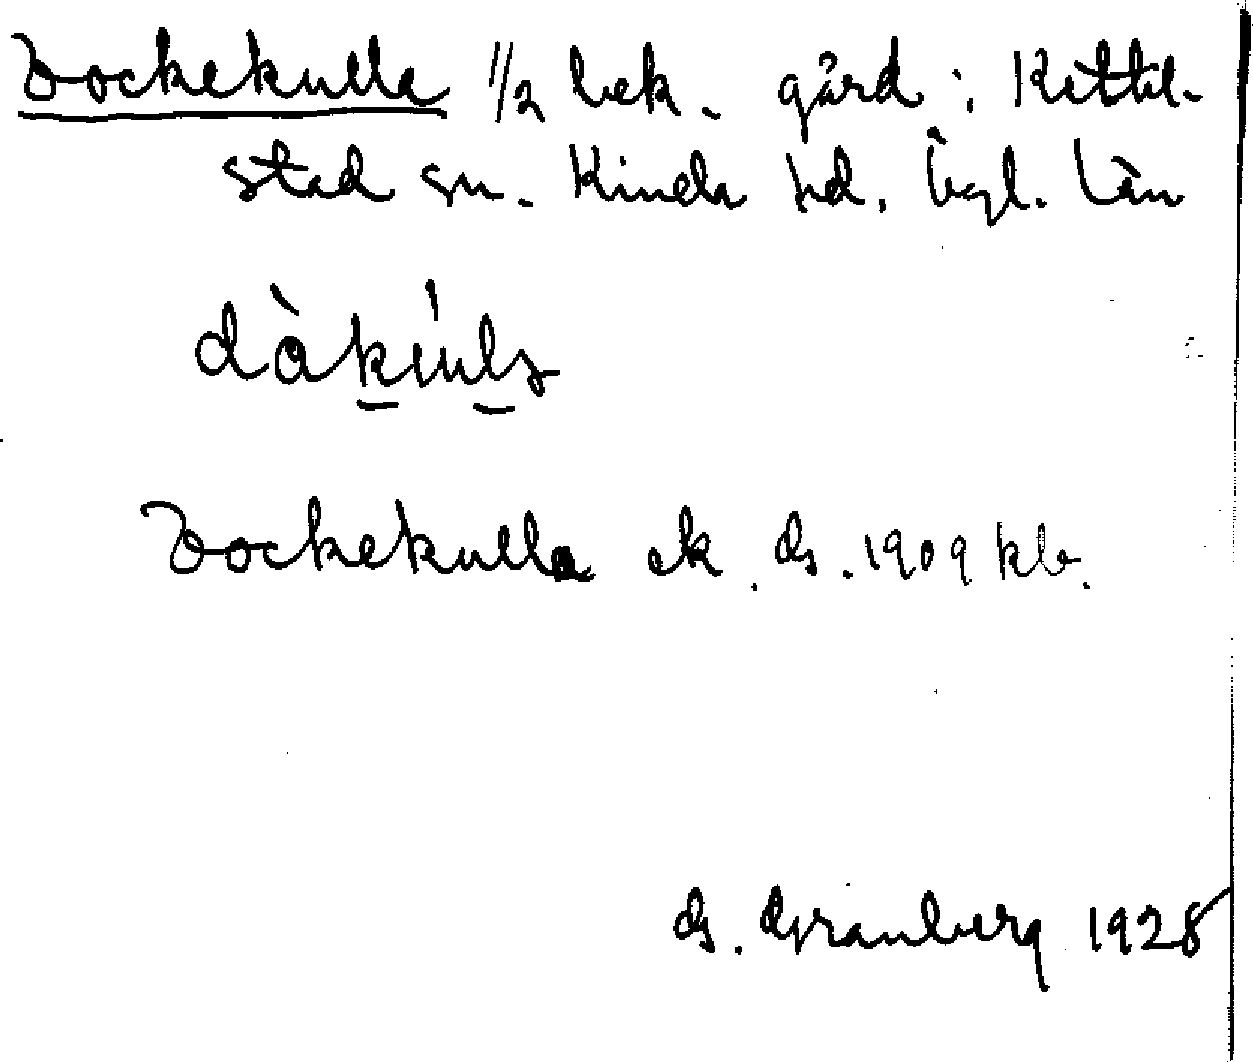 Dockekulla 1/2 bek. gård i Kettil-
stad sn. Kinda hd. Ögl. Län
dàkíulz
Dockekulla ek. G. 1909 kb.
G. Granberg 1928